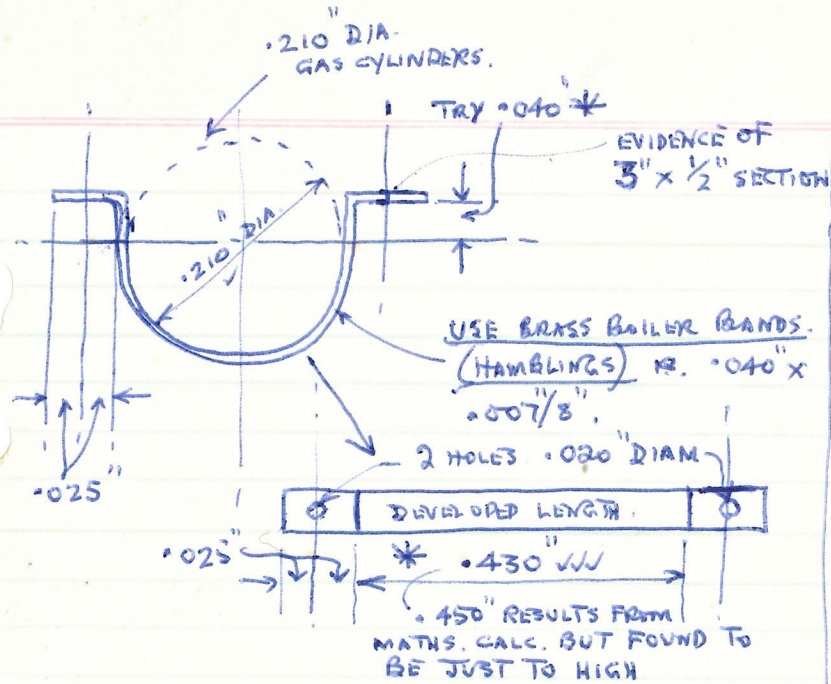 .210" DIA.
GAS CYLINDERS.
TRY .040" *
EVIDENCE OF
3" x 1/2" SECTION
.210" DIA.
USE BRASS BOILER BANDS.
(HAMBLINGS) .040" x
.007"/8".
.025"
2 HOLES .020" DIAM
DEVELOPED LENGTH.
.025"
* .430" ✓✓✓
.450" RESULTS FROM
MATHS. CALC. BUT FOUND TO
BE JUST TO HIGH